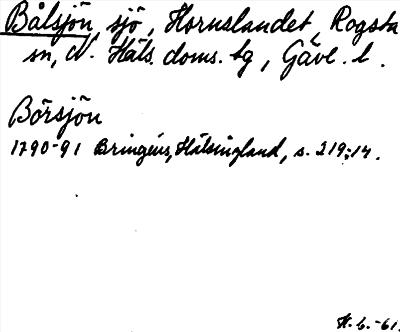 Bålsjön, sjö, Hornslandet, Rogsta
sn, N. Häls. doms. tg, Gävl. l.
Börsjön
1790-91 Bringéus, Hälsingland, s. 219:14.
H. b. -61.